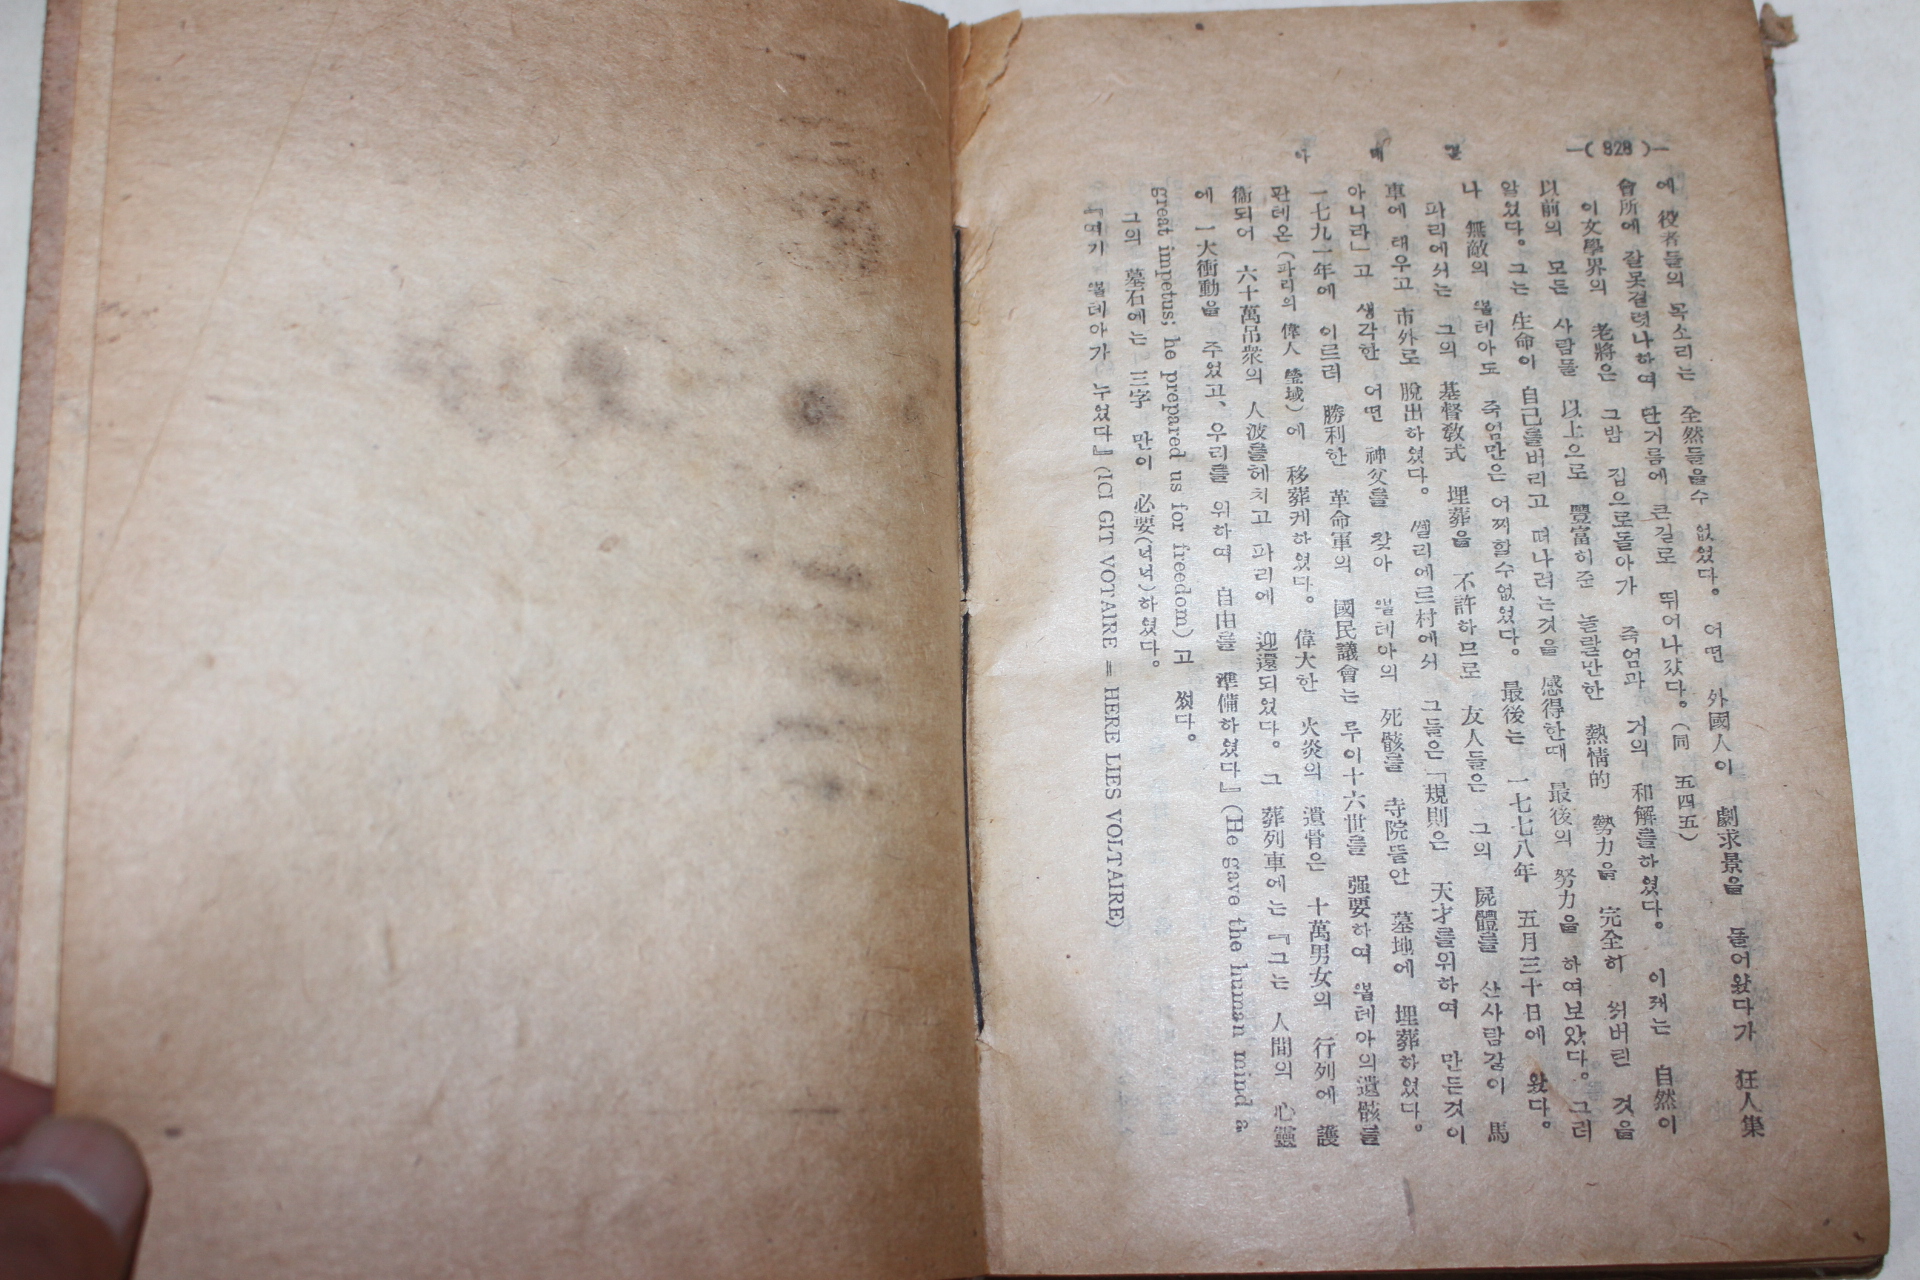 —( 328 )—
에 役者들의 목소리는 全然들을수 없었다。 어떤 外國人이 劇求景을 들어왔다가 狂人集
會所에 잘못걸렷나하여 단거름에 큰길로 뛰어나갔다。(同 五四五)
이文學界의 老將은 그밤 집으로돌아가 죽엄과 거의 和解를하였다。 이제는 自然이
以前의 모든 사람들 以上으로 豐富히준 놀랄만한 熱情的 勢力을 完全히 써버린 것을
알았다。그는 生命이 自己를버리고 떠나려는것을 感得한때 最後의 努力을 하여보았다。그러
나 無敵의 볼테아도 죽엄만은 어찌할수없었다。 最後는 一七七八年 五月三十日에 왔다。
파리에서는 그의 基督敎式 埋葬을 不許하므로 友人들은 그의 屍體를 산사람같이 馬
車에 태우고 市外로 脫出하였다。 쎌리에르村에서 그들은「規則은 天才를위하여 만든것이
아니라」고 생각한 어떤 神父를 찾아 볼테아의 死骸를 寺院뜰안 墓地에 埋葬하였다。
一七九一年에 이르러 勝利한 革命軍의 國民議會는 루이十六世를 强要하여 볼테아의遺骸를
판테온(파리의 偉人 塋域)에 移葬케하였다。 偉大한 火炎의 遺骨은 十萬男女의 行列에 護
衞되어 六十萬吊衆의 人波를헤치고 파리에 迎還되었다。 그 葬列車에는『그는 人間의 心靈
에 一大衝動을 주었고、우리를 위하여 自由를 準備하였다』(He gave the human mind a
great impetus; he prepared us for freedom)고 썼다。
그의 墓石에는 三字 만이 必要(넉넉)하였다。
『여기 볼테아가 누었다』(ICI GIT VOTAIRE = HERE LIES VOLTAIRE)